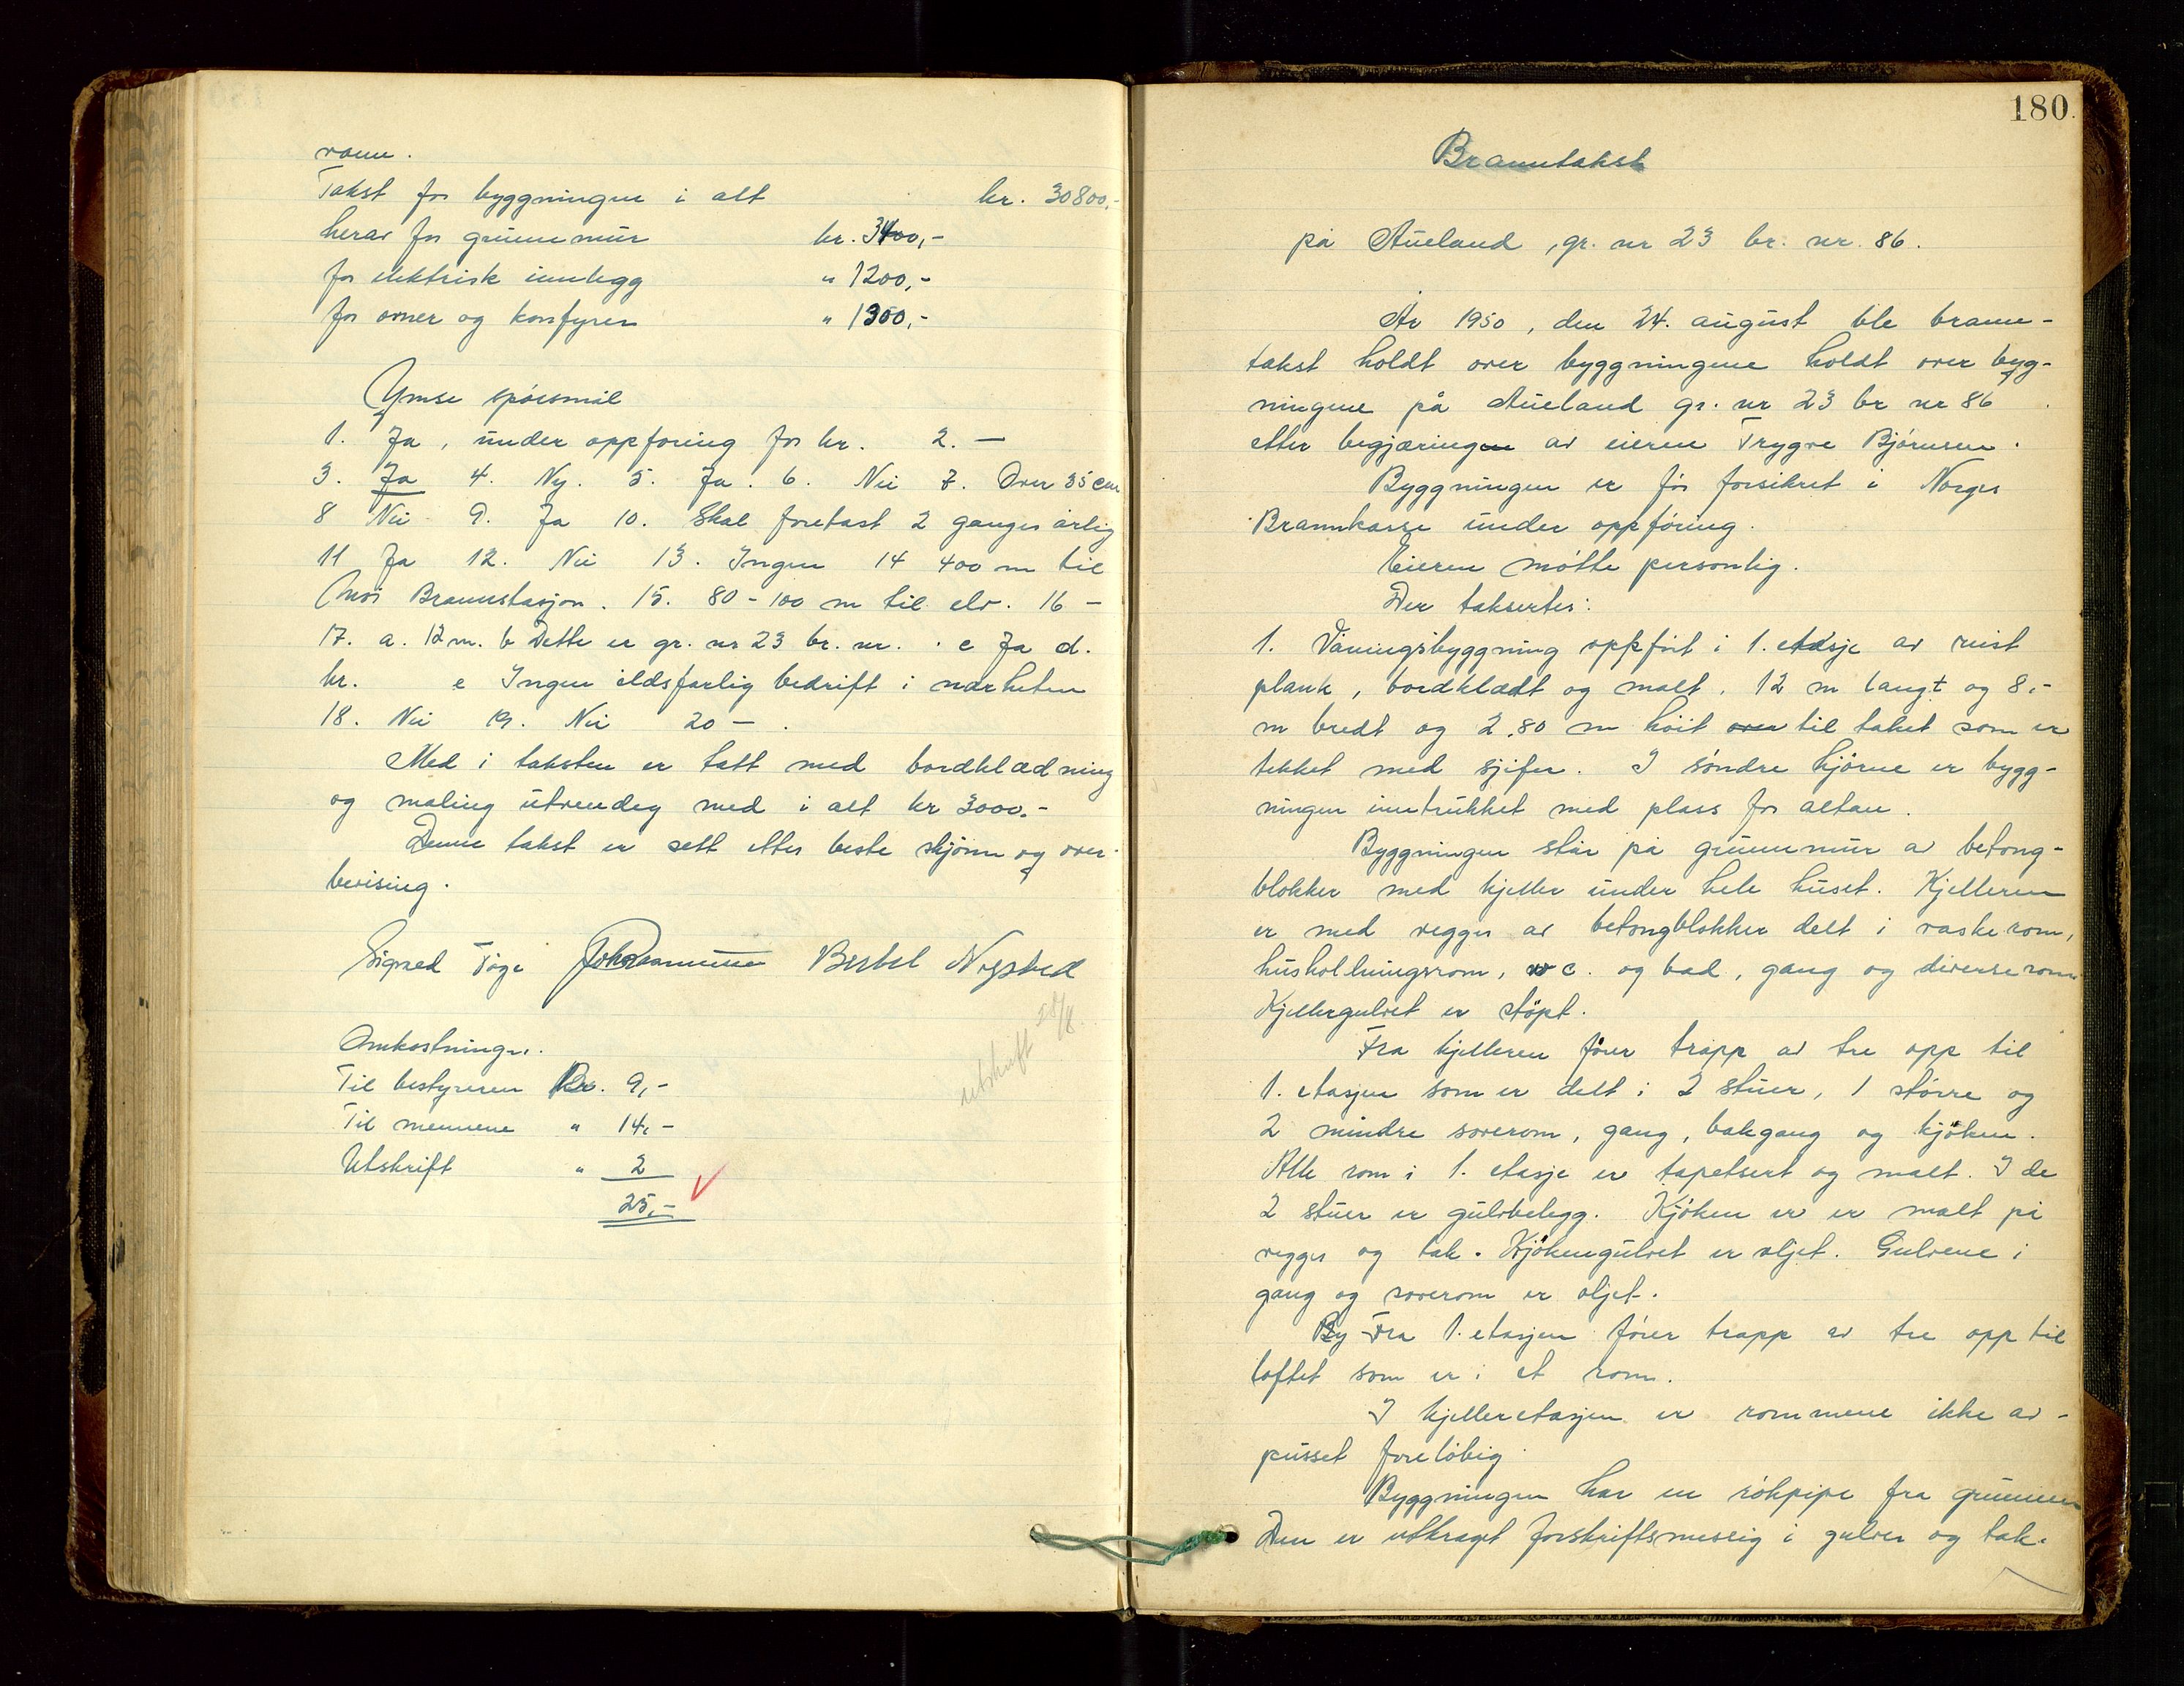 vann.
Takst for byggningen i alt kr. 30800,-
herav for grunnmur kr. 3400,-
for elektrisk innlegg " 1200,-
for ovner og komfyrer " 1300,-
Ymse spørsmål
1. Ja, under oppføring for kr. 2. —
3. Ja 4. Ny. 5. Ja. 6. Nei 7. Over 35 cm
8 Nei 9. Ja 10. Skal foretast 2 ganger årlig
11 Ja 12. Nei 13. Ingen 14 400 m til
Moi Brannstasjon. 15. 80-100 m til elv. 16 -
17. a. 12 m. b Dette er gr. nr 23 br. nr. . c Ja d.
kr. e Ingen ildsfarlig bedrift i nærheten
18. Nei 19. Nei 20 - .
Med i taksten er tatt med bordklædning
og maling utvendig med i alt kr 3000.-
Denne takst er sett etter beste skjønn og over-
bevising.
Sigved Bertel Nygsted
utskrift 28/8
Omkostninger.
Til bestyreren Kr. 9,-
Til mennene " 14,-
Utskrift " 2
25,-
180.
Branntakst
på Aueland, gr. nr 23 br. nr. 86.
År 1950, den 24. august ble brann-
takst holdt over byggningene holdt over byg-
ningene på Aueland gr. nr 23 br nr 86
etter begjæringen av eieren Trygve Bjørnsen.
Byggningen er før forsikret i Norges
Brannkasse under oppføring.
Eieren møtte personlig.
Der taksertes:
1. Våningsbyggning oppført i 1. etasje av reist
plank, bordklædt og malt. 12 m langt og 8,-
m bredt og 2.80 m høit over til taket som er
tekket med sjifer. I søndre hjørne er bygg-
ningen inntrukket med plass for altan.
Byggningen står på grunnmur a betong-
blokker med kjeller under hele huset. Kjelleren
er med vegger av betongblokker delt i vaskerom,
husholdningsrom, wc. og bad, gang og diverse rom
Kjellergulvet er støpt.
Fra kjelleren fører trapp av tre opp til
1. etasjen som er delt i 2 stuer, 1 større og
2 mindre soverom, gang, bakgang og kjøken.
Alle rom i 1. etasje er tapetsert og malt. I de
2 stuer er gulvbelegg. Kjøken er er malt på
vegger og tak. Kjøkengulvet er oljet. Gulvene i
gang og soverom er oljet.
By Fra 1. etasjen fører trapp av tre opp til
loftet som er i et rom.
I kjelleretasjen er rommene ikke av-
pusset foreløbig
Byggningen har en røkpipe fra grunnen
Den er utkraget forskriftsmessig i gulver og tak.